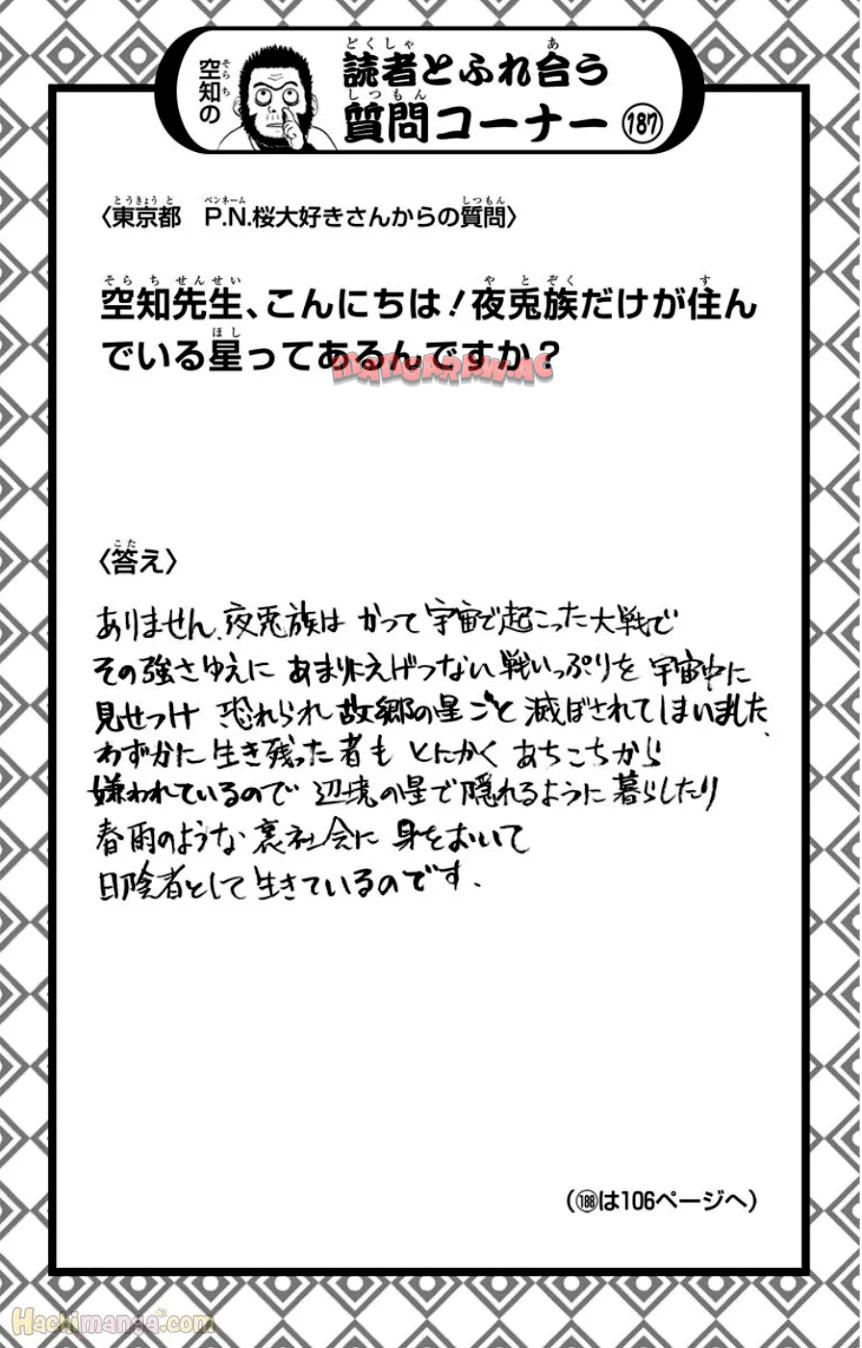 空知の
読者とふれ合う
質問コーナー 187
〈東京都 P.N.桜大好きさんからの質問〉
空知先生、こんにちは!夜兎族だけが住ん
でいる星ってあるんですか?
MANGARAW.AC
〈答え〉
ありません。夜兎族は かつて宇宙で起こった大戦で
その強さゆえに あまりにえげつない戦いっぷりを 宇宙中に
見せつけ 恐れられ 故郷の星ごと 滅ぼされてしまいました。
わずかに生き残った者も とにかく あちこちから
嫌われているので 辺境の星で隠れるように暮らしたり
春雨のような 裏社会に 身をおいて
日陰者として生きているのです。
(188は106ページへ)
Hachimanga.com